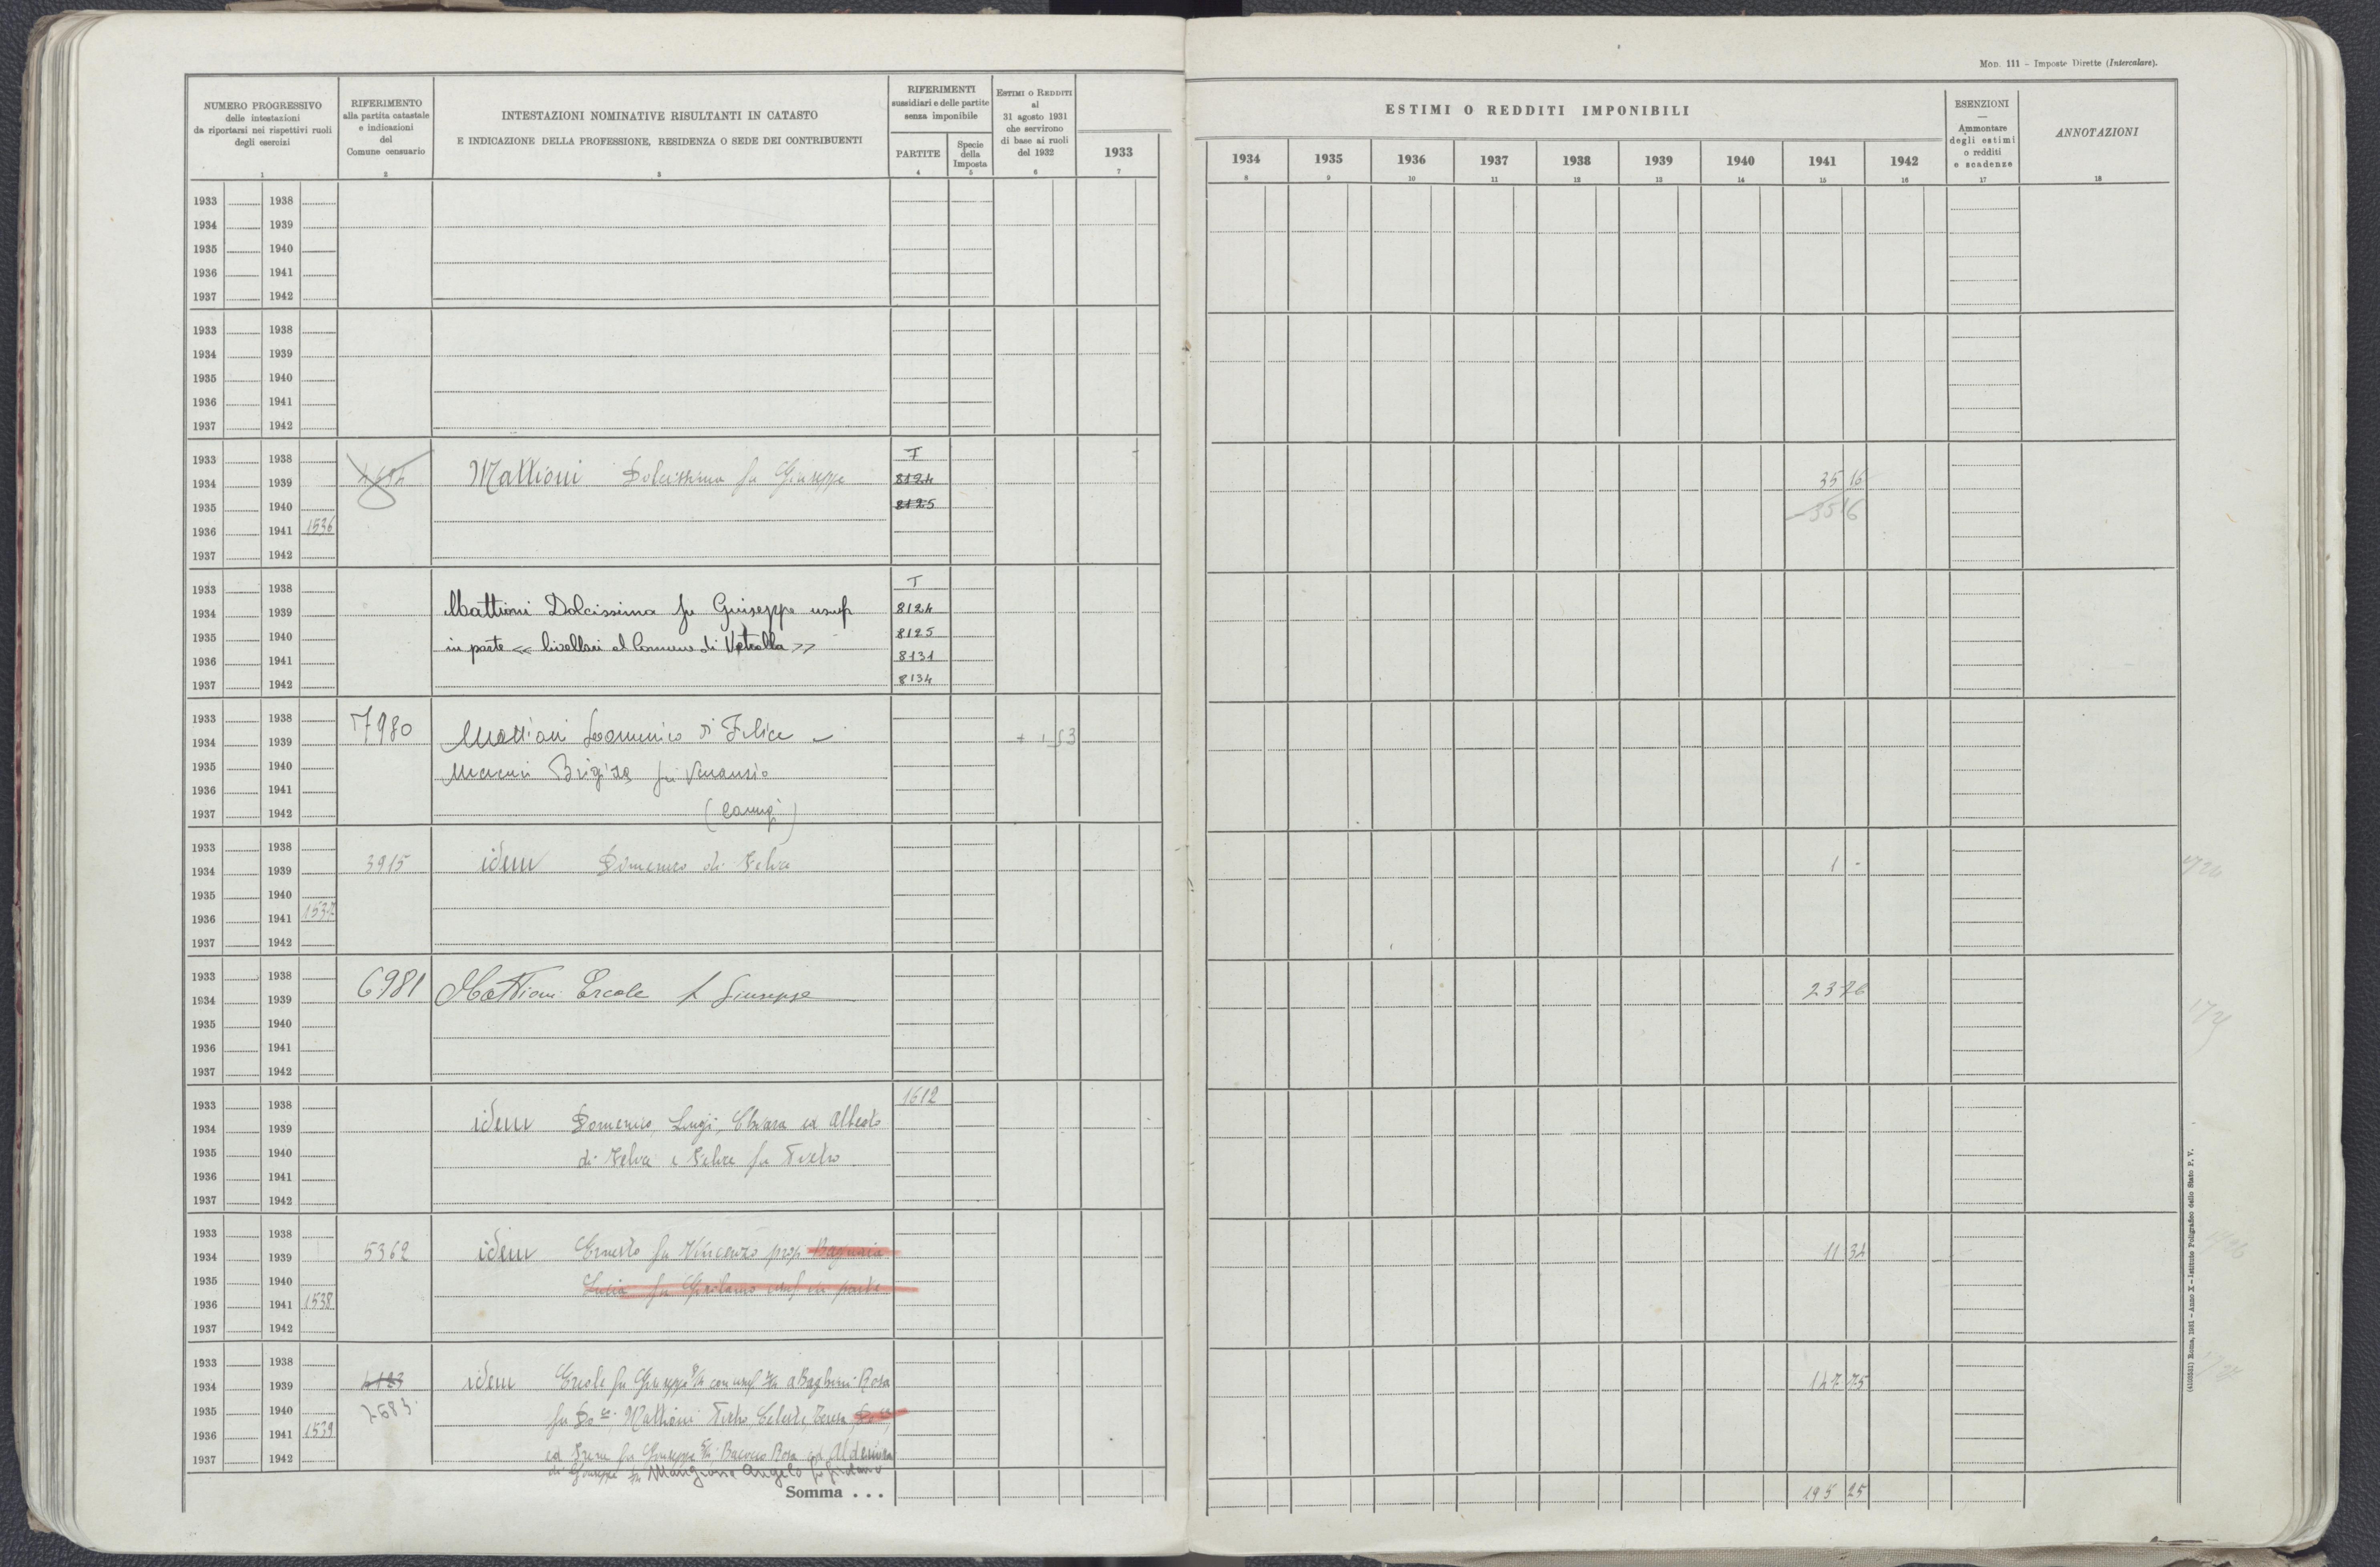 Mod. 111 - Imposte Dirette (Intercalare).
NUMERO PROGRESSIVO
delle intestazioni
da riportarsi nei rispettivi ruoli
degli esercizi
1
RIFERIMENTO
alla partita catastale
e indicazioni
del
Comune censuario
2
INTESTAZIONI NOMINATIVE RISULTANTI IN CATASTO
E INDICAZIONE DELLA PROFESSIONE, RESIDENZA O SEDE DEI CONTRIBUENTI
3
RIFERIMENTI
sussidiari e delle partite
senza imponibile
PARTITE
4
Specie
della
Imposta
5
Estimi o Redditi
al
31 agosto 1931
che servirono
di base ai ruoli
del 1932
6
1933
7
ESTIMI O REDDITI IMPONIBILI
1934 1935 1936 1937 1938 1939 1940 1941 1942
8 9 10 11 12 13 14 15 16
ESENZIONI
—
Ammontare
degli estimi
o redditi
e scadenze
17
ANNOTAZIONI
18
1933 1938
1934 1939
1935 1940
1936 1941
1937 1942
1933 1938
1934 1939
1935 1940
1936 1941
1937 1942
1933 1938 T
1934 1939 Mattioni Dolcissima fu Giuseppe 8124 35 16
1935 1940 8125 3516
1936 1941 1536
1937 1942
1933 1938 T
1934 1939 Mattioni Dolcissima fu Giuseppe usuf 8124
1935 1940 in parte << livellari al Comune di Vetralla >> 8125
1936 1941 8131
1937 1942 8134
1933 1938 7980
1934 1939 Mattioni Domenico di Felice + 1 53
1935 1940 Brigida fu Venanzio
1936 1941
1937 1942
1933 1938
1934 1939 3915 idem Domenico di Felice 1 -
1935 1940
1936 1941 1537
1937 1942
1933 1938
1934 1939 6981 Mattioni Ercole f Giuseppe 23 76
1935 1940
1936 1941
1937 1942
1612
1933 1938
1934 1939 idem Domenico, Luigi, Chiara ed Alberto
1935 1940 di Felice e Felice fu Pietro
1936 1941
1937 1942
1933 1938
1934 1939 5362 idem Ernesto fu Vincenzo prop Bagnaia 11 34
1935 1940 Lucia fu Girolamo usuf in parte
1936 1941 1538
1937 1942
1933 1938
1934 1939 4123 idem Ercole fu Giuseppe con usuf a Rosa 147 75
1935 1940 7683 fu Mattioni Pietro, Celeste, Teresa
1936 1941 1539
1937 1942 ed Irene fu Giuseppe Rosa ed
di Giuseppe Angelo fu
Somma . . . 195 25
(4103551) Roma, 1931 - Anno X - Istituto Poligrafico dello Stato P. V.